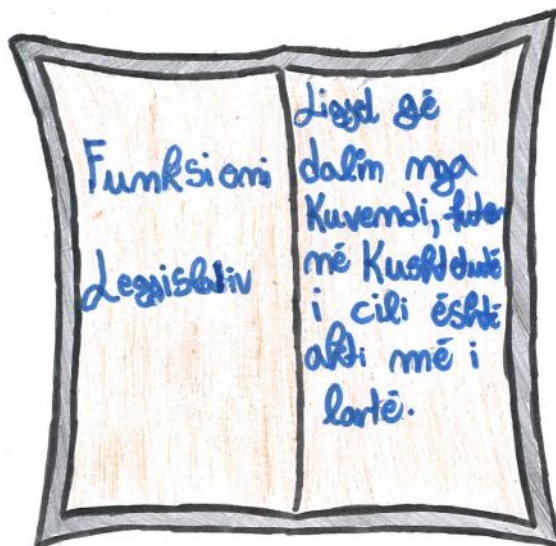 Funksioni
Legjislativ
Ligjet që
dalin nga
Kuvendi, futen
në Kushtetutë
i cili është
akti më i
lartë.